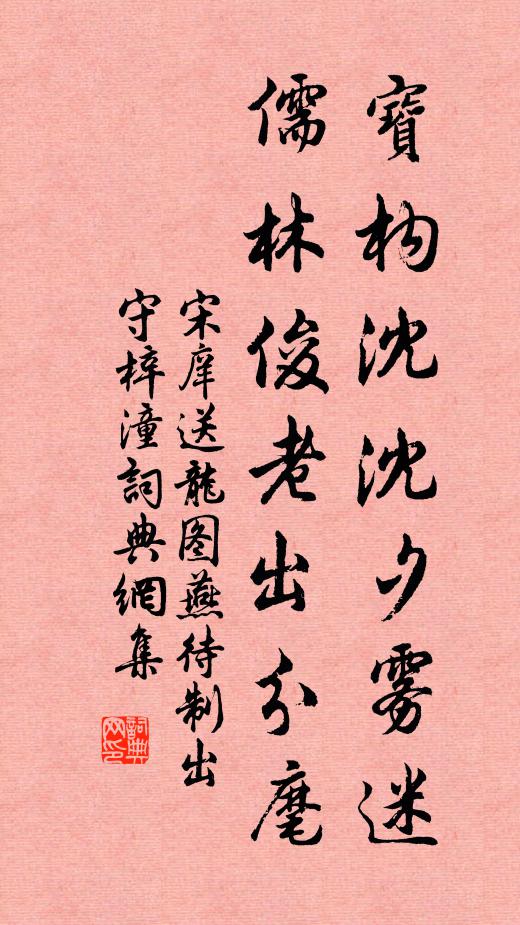 寶构沈沈夕雾迷
儒林俊老出分麾
宋庠送龍图燕待制出
守梓潼詞典網集
詞典網印